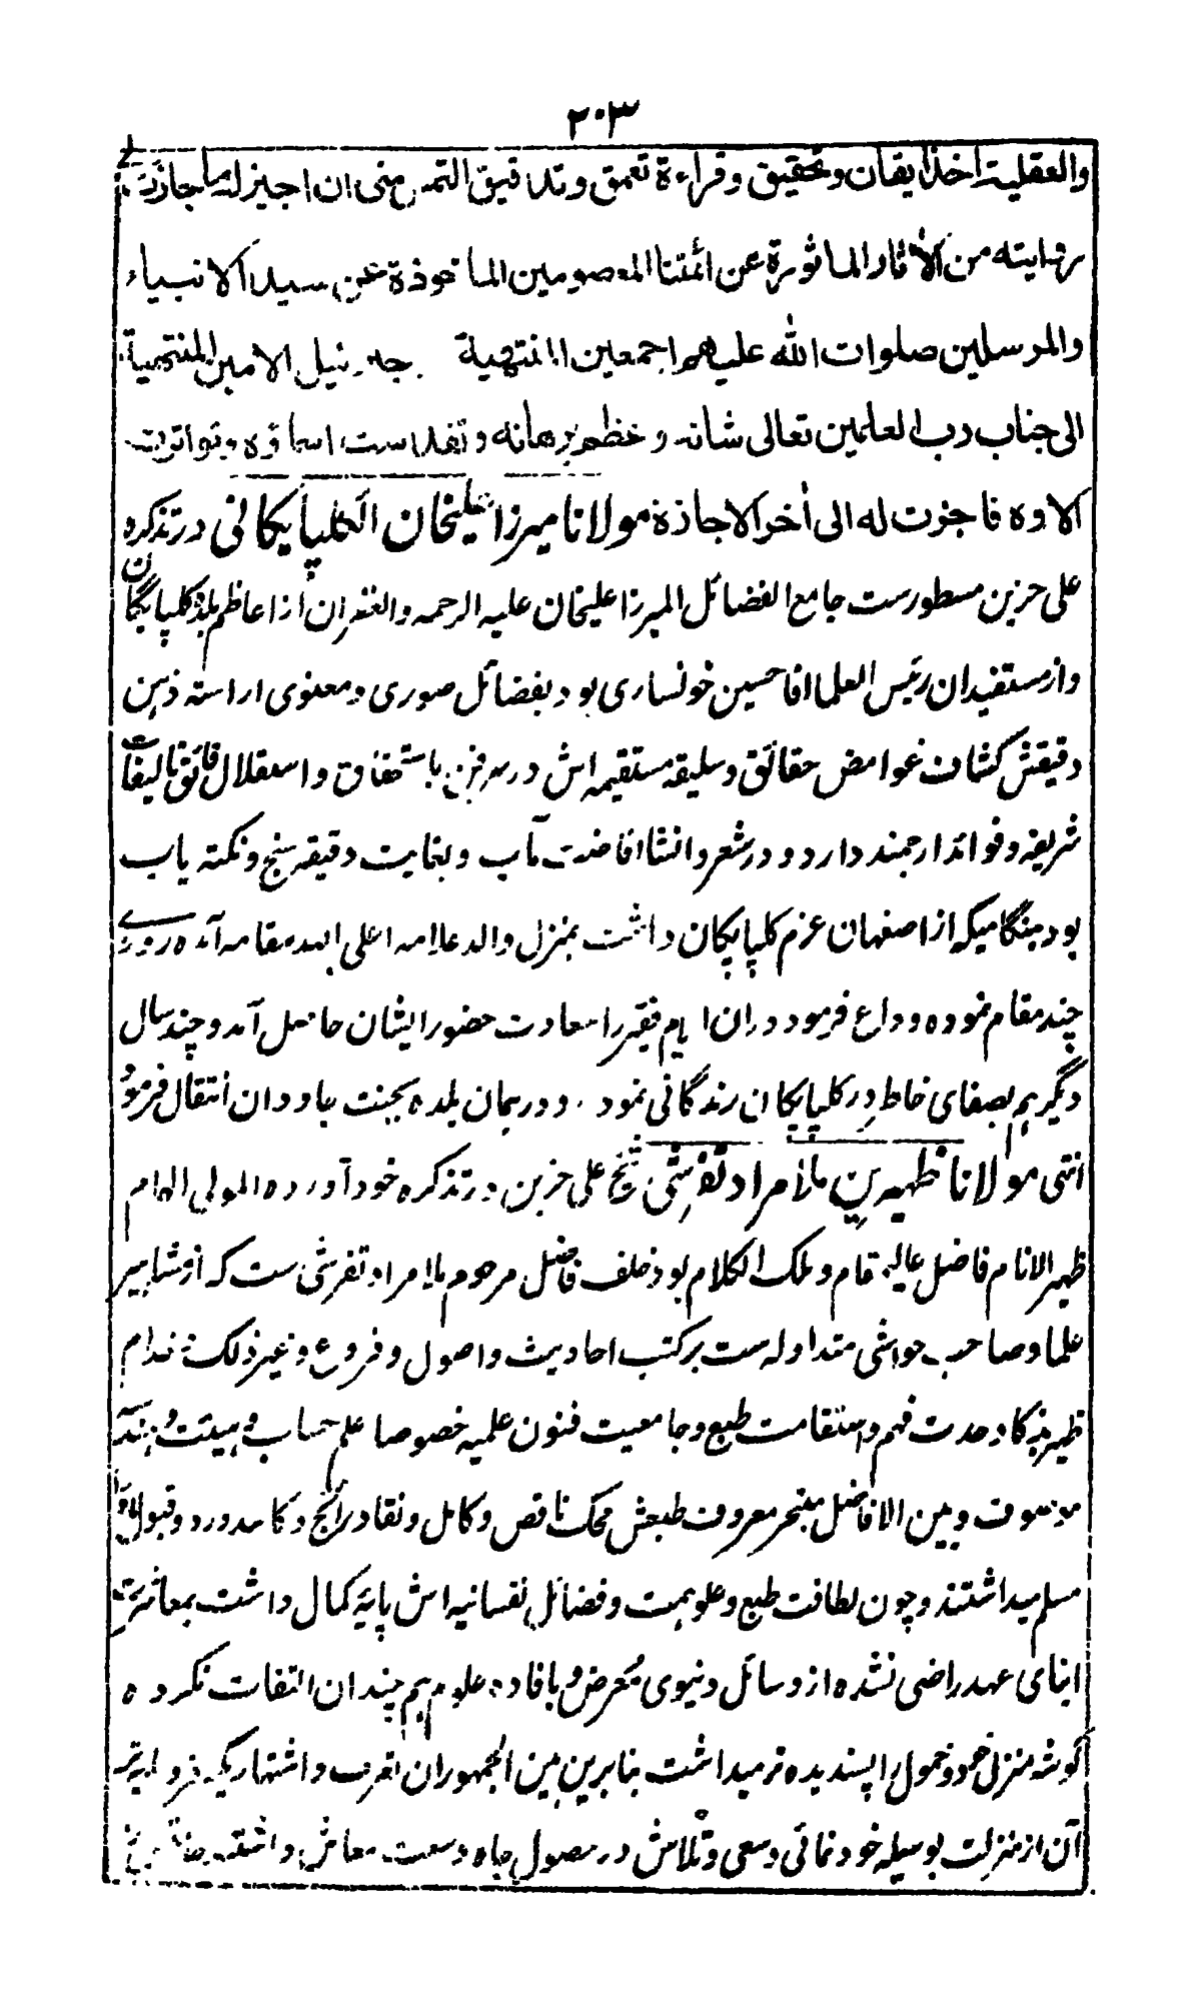 ٢٠٣
والعقلية اخذ ايقان وتحقيق وقراءة تعمق وتدقيق التمس منى ان اجيز له ما جازت لى
روايته من الاثار الماثورة عن ائمتنا المعصومين الماخوذة عن سيد الانبياء
والمرسلين صلوات الله عليهم اجمعين المنتهية جبرئيل الامين المنتهية
الى جناب رب العلمين تعالى شانه وعظم برهانه وتقدست اسماؤه وتواترت
الاوه فاجزت له الى أخر الاجازة مولانا ميرزا عليخان الگلپايگانى در تذكره
على حزين مسطورست جامع الفضائل الميرزا عليخان عليه الرحمه والغفران از اعاظم بلدهٔ گلپايگان
واز مستفيدان رئيس العلما اقا حسين خونسارى بود بفضائل صورى ومعنوى اراسته ذهن
دقيقش كشاف غوامض حقائق وسليقه مستقيمه اش در هر فن باستحقاق واستقلال فائق تاليفات
شريفه وفوائد ارجمند دارد ودر شعر وانشا افاضت مآب وبغايت دقيقه سنج ونكته ياب
بود هنگاميكه از اصفهان عزم گلپايگان داشت بمنزل والد علامه اعلى الله مقامه آمده روزے
چند مقام نموده وداع فرمود دران ايام فقير را سعادت حضور ايشان حاصل آمد وچند سال
ديگر هم بصفاى خاطر در گلپايگان زندگانى نمود ودر همان بلده بجنت جاودان انتقال فرمود
انتهى مولانا ظهير بن ملا مراد تفرشى شيخ على حزين در تذكره خود آورده المولى الهمام
ظهير الانام فاضل عاليمقام وملك الكلام بود خلف فاضل مرحوم ملا مراد تفرشى ست كه از مشاهير
علما وصاحب حواشى متداوله ست بر كتب احاديث واصول وفروع وغير ذلك
ظهير بذكا وحدت فهم واستقامت طبع وجامعيت فنون علميه خصوصا علم حساب وهيئت وهندسه
موصوف وبين الافاضل بتبحر معروف طبعش محك ناقص وكامل ونقاد رائج وكاسد ورد وقبول
مسلم ميداشتند وچون لطافت طبع وعلو همت وفضائل نفسانيه اش پايهٔ كمال داشت بمعاشرت
ابناى عهد راضى نشده از وسائل دنيوى معرض وبافاده علوم هم چندان التفات نكرده
گوشه منزل خود وخمول را پسنديده تر ميداشت بنابرين بين الجمهور ان تعرف واشتهاريكه فروتر
آن از منزلت بوسيله خودنمائى وسعى وتلاش در حصول جاه وسعت معاش داشته